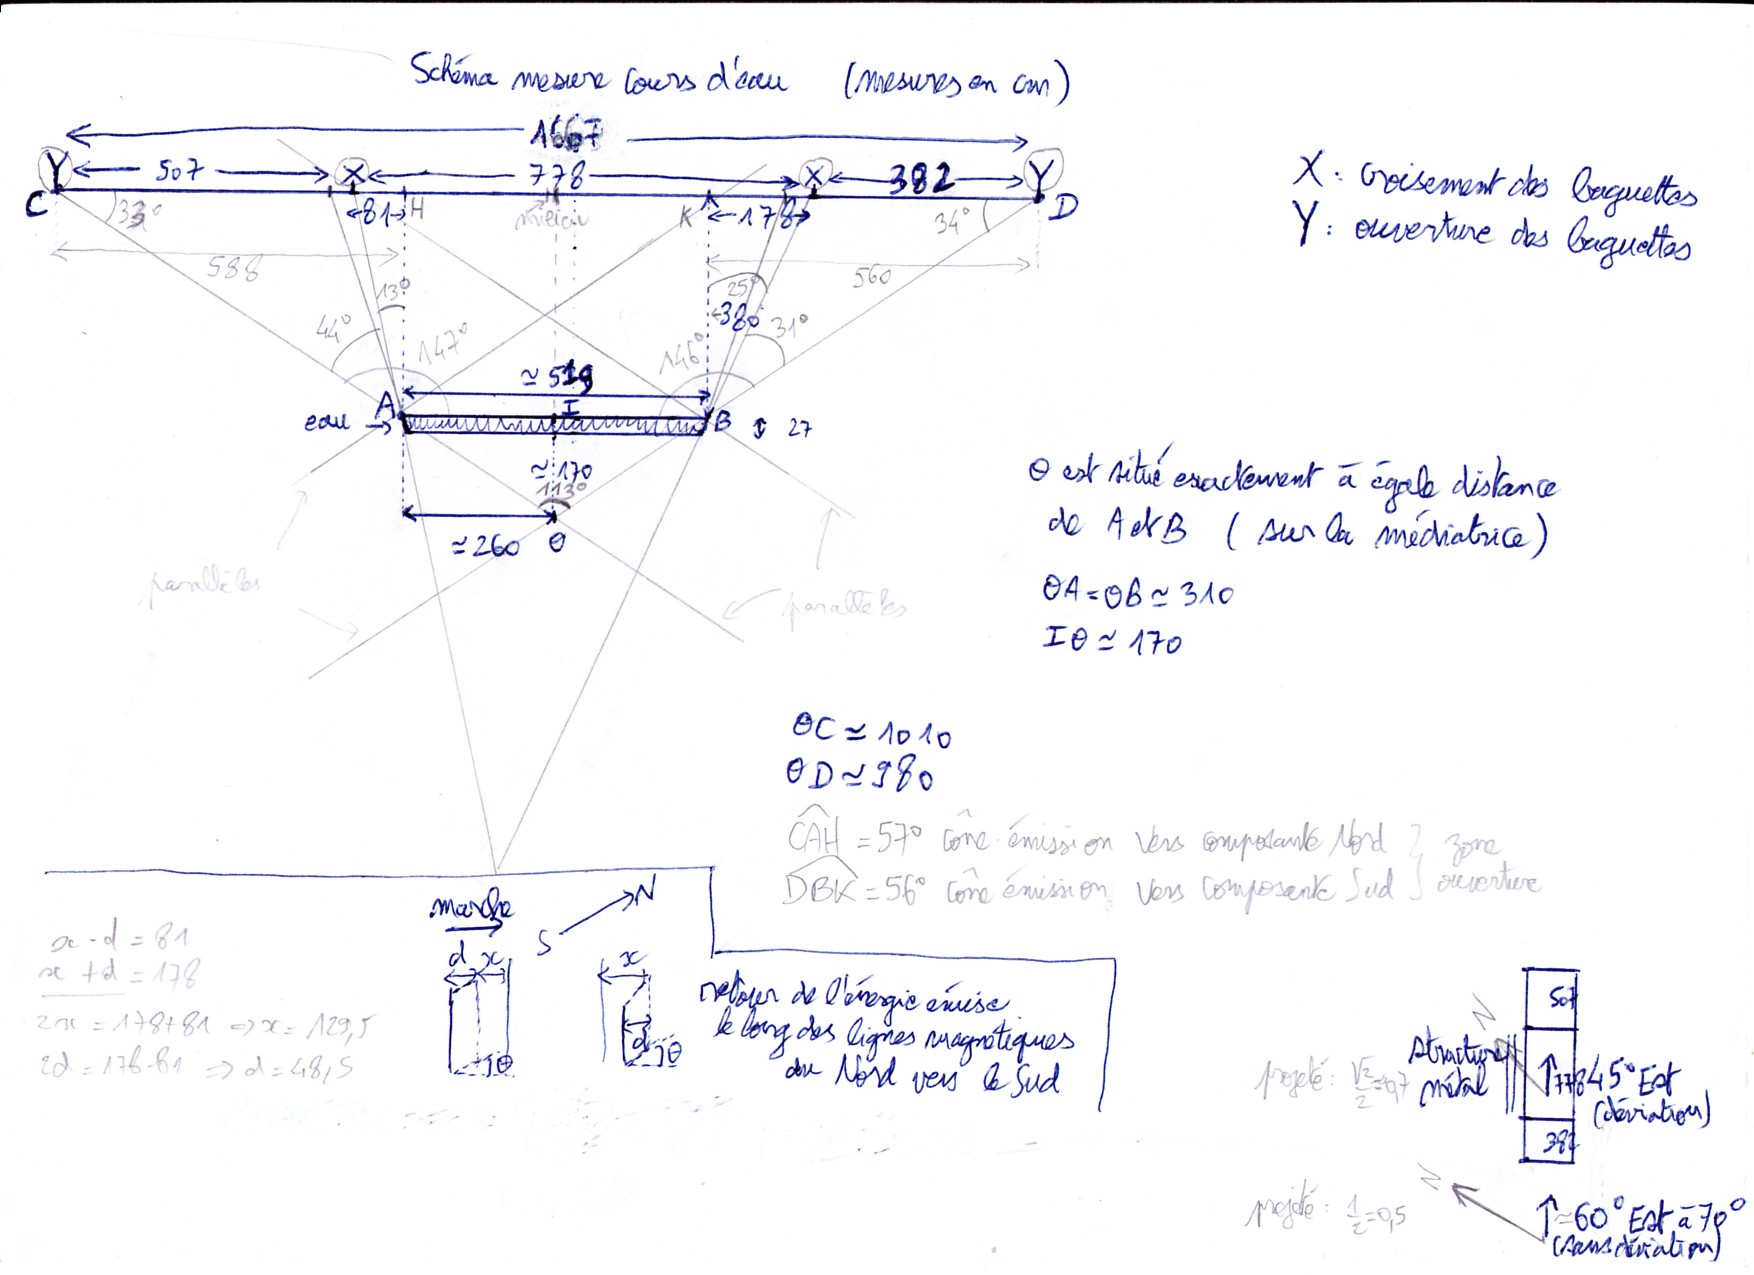 Schéma mesure cours d'eau (mesures en cm)
1667
Y 507 X 778 X 382 Y
C 33° 81 H milieu K 178 34° D
588 560
13° 25°
380
44° 147° 146° 31°
≃ 519
A I B
eau → ↕ 27
≃ 170
113°
≃ 260 O
parallèles
parallèles
X : croisement des baguettes
Y : ouverture des baguettes
O est situé exactement à égale distance
de A et B (sur la médiatrice)
OA = OB ≃ 310
IO ≃ 170
OC ≃ 1010
OD ≃ 980
CAH = 57° cône émission vers composante Nord } zone
DBK = 56° cône émission vers composante Sud } ouverture
marche
S N
d x x
d
θ θ
x - d = 81
x + d = 178
2x = 178+81 => x = 129,5
2d = 178-81 => d = 48,5
retour de l'énergie émise
le long des lignes magnétiques
du Nord vers le Sud
507
N
projeté : √2/2=0,7
structure
métal
↑ 778 45° Est
(déviation)
382
N
projeté : 1/2=0,5
↑ ≃60° Est à 70°
(sans déviation)